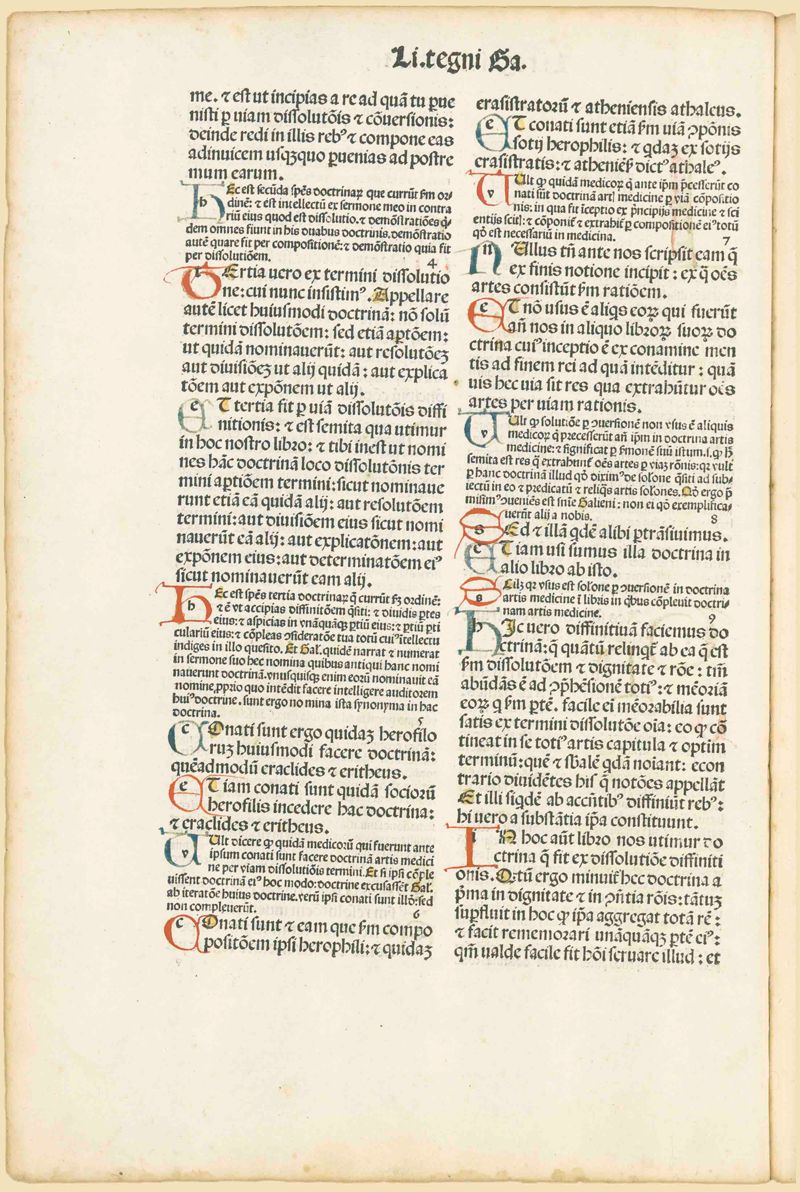 Li.tegni Ga.
me. ⁊ est ut incipias a re ad quā tu ꝑue
nisti ꝑ uiam dissolutōis ⁊ cōuersionis:
deinde redi in illis rebꝰ ⁊ compone eas
adinuicem usqꝫquo ꝑuenias ad postre
mum earum.
h Ec est secūda spēs doctrinaꝝ que currūt ẜm or⸗
dinē: ⁊ est intellectū ex sermone meo in contra
riū eius quod est dissolutio. ⁊ demōstratiōes qͥ
dem omnes fiunt in his duabus doctrinis. demōstratio
autē quare fit per compositionē: ⁊ demōstratio quia fit
per dissolutōem.
4
t Ertia uero ex termini dissolutio
ne: cui nunc insistimꝰ. Appellare
autē licet huiusmodi doctrinā: nō solū
termini dissolutōem: sed etiā aꝑtōem:
ut quidā nominauerūt: aut resolutōeꝫ
aut diuisiōeꝫ ut alij quidā: aut explica
tōem aut expōnem ut alij.
e T tertia fit ꝑ uiā dissolutōis diffi
nitionis: ⁊ est semita qua utimur
in hoc nostro libro: ⁊ tibi inest ut nomi
nes hāc doctrinā loco dissolutōnis ter
mini aꝑtiōem termini: sicut nominaue
runt etiā eā quidā alij: aut resolutōem
termini: aut diuisiōem eius sicut nomi
nauerūt eā alij: aut explicatōnem: aut
expōnem eius: aut determinatōem eiꝰ
sicut nominauerūt eam alij.
h Ec est spēs tertia doctrinaꝝ q̄ currūt ẜꝫ ordinē:
⁊ ē vt accipias diffinitōem q̄siti: ⁊ diuidis ꝑtes
eius: ⁊ aspicias in vnāquāqꝫ ꝑtiū eius: ⁊ ꝑtiū ꝑti
culariū eius: ⁊ cōpleas ɔsideratōe tua totū cuiꝰ ītellectu
indiges in illo quesito. Et Gal. quidē narrat ⁊ numerat
in sermone suo hec nomina quibus antiqui hanc nomi
nauerunt doctrinā. vnusquisqꝫ enim eorū nominauit eā
nomine ꝓprio quo intēdit facere intelligere auditorem
huiꝰ doctrine. sunt ergo nomina ista synonyma in hac
doctrina.
5
c Onati sunt ergo quidaꝫ herofilo
ruꝫ huiusmodi facere doctrinā:
quēadmodū eraclides ⁊ eritheus.
e Tiam conati sunt quidā sociorū
herofilis incedere hac doctrina:
⁊ eraclides ⁊ eritheus.
v Ult dicere qꝫ quidā medicorū qui fuerunt ante
ipsum conati sunt facere doctrinā artis medici
ne per viam dissolutiōis termini. Et si ipsi cōple
uissent doctrinā eiꝰ hoc modo: doctrine excusasset Gal.
ab iteratōe huius doctrine. verū ipsi conati sunt illō: sed
non compleuerūt.
6
c Onati sunt ⁊ eam que ẜm compo
positōem ipsi herophili: ⁊ quidaꝫ
erasistratorū ⁊ atheniensis athaleus.
e T conati sunt etiā ẜm uiā ɔpōnis
sotij herophilis: ⁊ qdaꝫ ex sotijs
erasistratis: ⁊ atheniēẜ dictꝰ athaleꝰ.
v Ult qꝫ quidā medicoꝝ q̄ ante ip̄m p̄cesserūt co
nati sūt doctrinā artꝭ medicine ꝑ viā cōpositio
nis: in qua fit īceptio ex p̄ncipijs medicine ⁊ sci
entijs scit̄: ⁊ cōponit̄ ⁊ extrahit̄ ꝑ compositionē eiꝰ totū
qō est necessariū in medicina.
7
n Ullus tn̄ ante nos scripsit eam q̄
ex finis notione incipit: ex q̄ oēs
artes consistūt ẜm ratiōem.
e T nō usus ē aliqs eoꝝ qui fuerūt
an̄ nos in aliquo libroꝝ suoꝝ do
ctrina cuiꝰ inceptio ē ex conamine men
tis ad finem rei ad quā intēditur: quā
uis hec uia sit res qua extrahūtur oēs
artes per uiam rationis.
v Ult qꝫ solutiōe ꝑ ɔuersionē non vsus ē aliquis
medicoꝝ q̄ precesserūt an̄ ipīm in doctrina artis
medicine: ⁊ significat ꝑ smonē suū istum. s. qꝫ h̄
semita est res q̄ extrahunt̄ oēs artes ꝑ viaꝫ rōnis: qꝛ vult̄
ꝑ hanc doctrinā illud qō diximꝰ de solōne q̄siti ad sub⸗
iectū in eo ⁊ p̄dicatū ⁊ reliqs artis solōnes. Qō ergo p̄
misimꝰ ɔueniēs est sniē Galieni: non ei qō exemplifica⸗
uerūt alij a nobis.
8
s Ed ⁊ illā qdē alibi ꝑtrāsiuimus.
e Tiam usi sumus illa doctrina in
alio libro ab isto.
s Cilꝫ qꝛ vsus est solōne ꝑ ɔuersionē in doctrina
artis medicine ī libris in qbus cōpleuit doctri⸗
nam artis medicine.
9
h Jc uero diffinitiuā faciemus do
ctrinā: q̄ quātū relinqt̄ ab ea q̄ est
ẜm dissolutōem ⁊ dignitate ⁊ rōe: tm̄
abūdās ē ad ɔp̄hēsionē totiꝰ: ⁊ mēoriā
eoꝝ q̄ ẜm ꝑtē. facile ei mēorabilia sunt
satis ex termini dissolutōe oīa: eo qꝫ cō
tineat in se totiꝰ artis capitula ⁊ optim
terminū: quē ⁊ sbālē qdā noīant: econ
trario diuidētes hisꝰ q̄ notōes appellāt
Et illi siqdē ab accn̄tibꝰ diffiniūt rebꝰ:
hi uero a substātia ip̄a constituunt.
I N hoc aūt libro nos utimur do
ctrina q̄ fit ex dissolutiōe diffiniti
onis. Qtū ergo minuit̄ hec doctrina a
p̄ma in dignitate ⁊ in ɔn̄tia rōis: tātuꝫ
suꝑfluit in hoc qꝫ ip̄a aggregat totā rē:
⁊ facit rememorari unāquāqꝫ ꝑtē eiꝰ:
qm̄ ualde facile fit hōi seruare illud: et